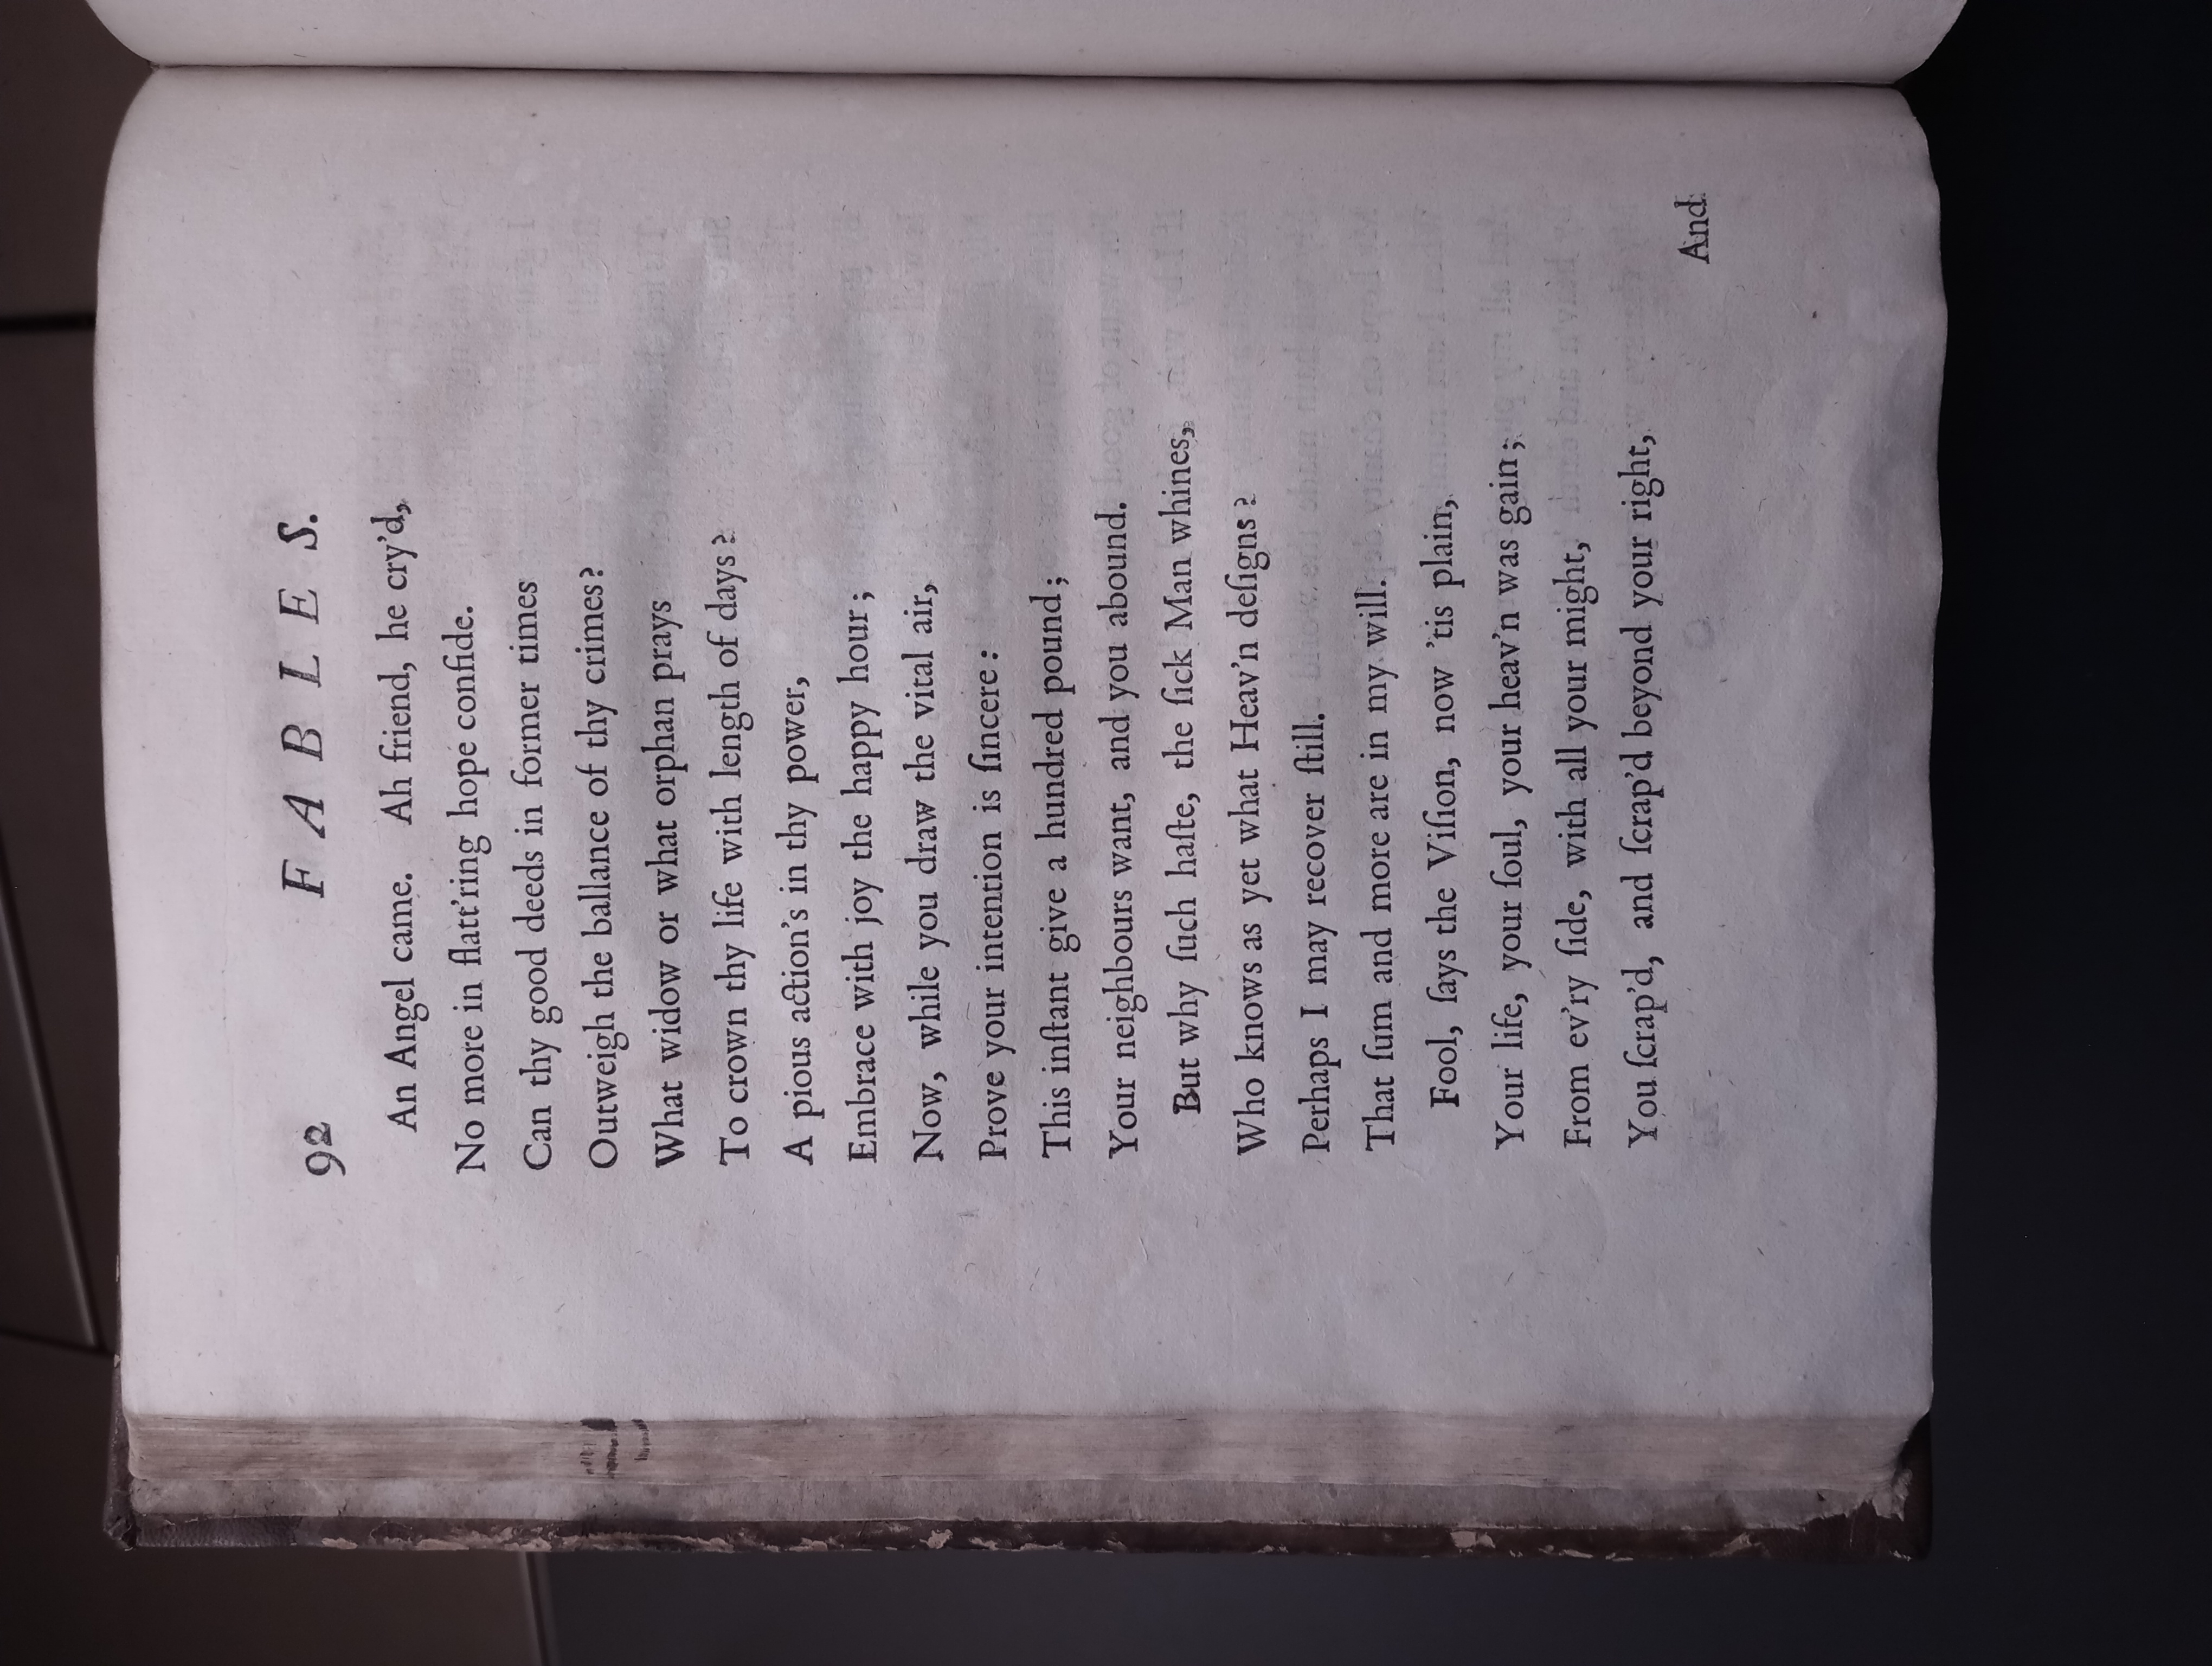 92 F A B L E S.
An Angel came. Ah friend, he cry'd,
No more in flatt'ring hope confide.
Can thy good deeds in former times
Outweigh the ballance of thy crimes?
What widow or what orphan prays
To crown thy life with length of days?
A pious action's in thy power,
Embrace with joy the happy hour;
Now, while you draw the vital air,
Prove your intention is ſincere:
This inſtant give a hundred pound;
Your neighbours want, and you abound.
But why ſuch haſte, the ſick Man whines,
Who knows as yet what Heav'n deſigns?
Perhaps I may recover ſtill.
That ſum and more are in my will.
Fool, ſays the Viſion, now 'tis plain,
Your life, your ſoul, your heav'n was gain;
From ev'ry ſide, with all your might,
You ſcrap'd, and ſcrap'd beyond your right,
And